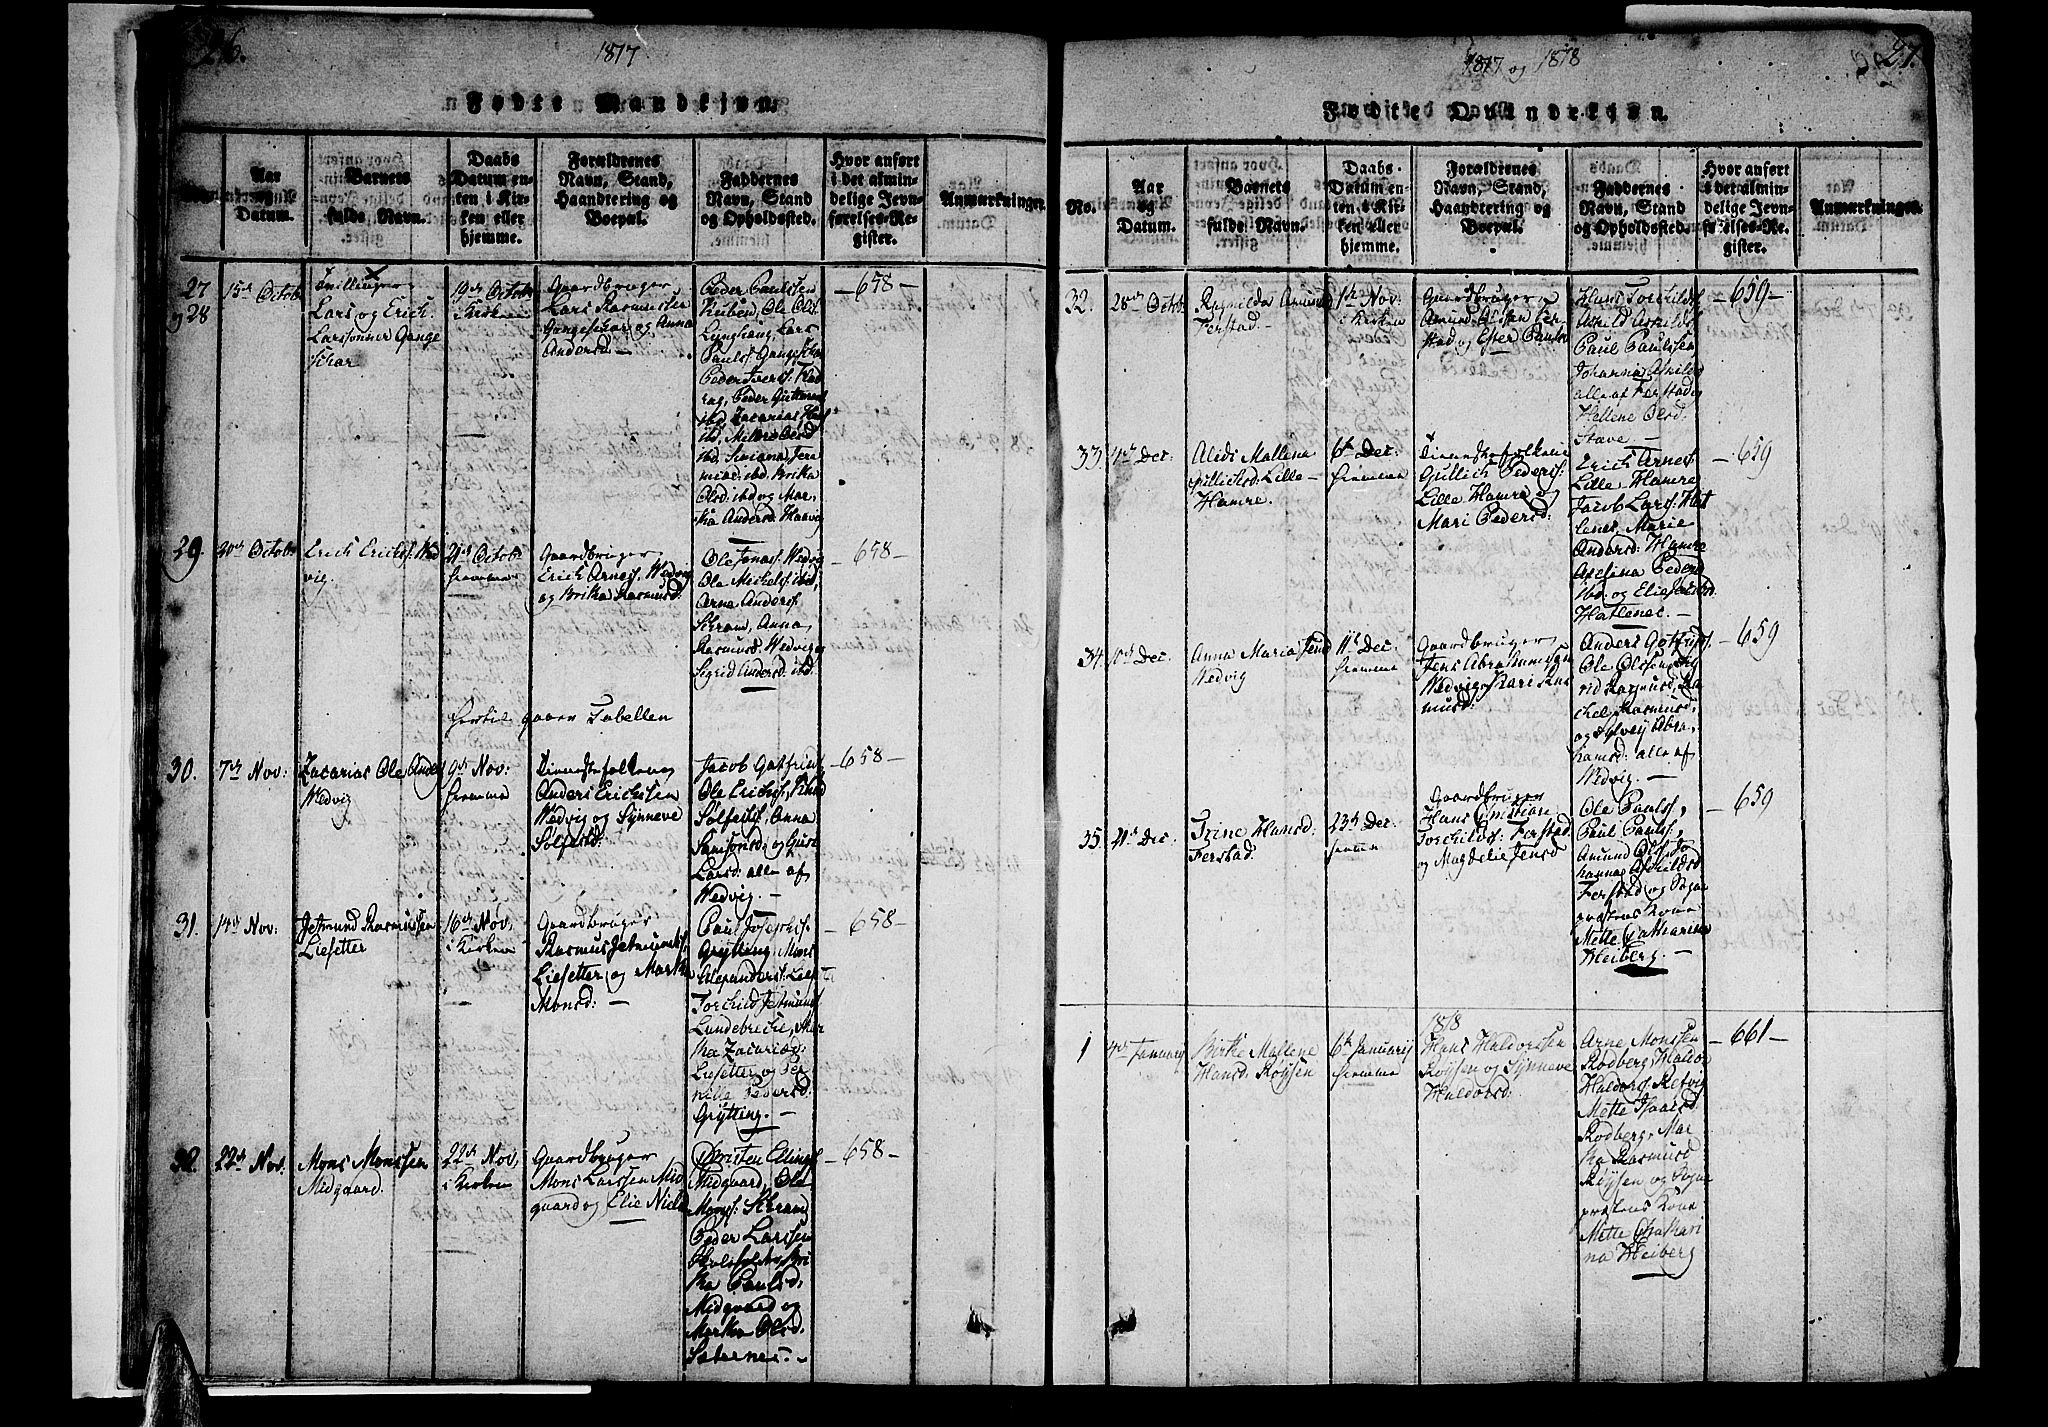 26.
1817
Fødte Mandkjøn.
Aar og Datum.
Barnets fulde Navn.
Daabs Datum enten i Kirken eller hjemme.
Forældrenes Navn, Stand, Haandtering og Boepæl.
Faddernes Navn, Stand og Opholdssted.
Hvor anført i det almindelige Jevnførelses-Register.
Anmærkninger.
27
og 28
15de Octob
Tvillinger
Lars og Erich
Larssønner Gange
skar
19de Octob
i Kirken
Gaardbruger
Lars Rasmussen
Gangeskar og Anna
Andersd. —
Peder Paulssen
Ole Ols
Lars
Pauls Gangeskar
Peder Iversf.
Peder
ibd, Zacarias
ibd,
ibd
ibd. Brika
Olsd ibd og Mar,
tha Andersd. Haavig
— 658 —
29.
20de Octob
Erich Erichs. Wed
vig.
21de Octob
hiemme
Gaardbruger
Erich Arnes. Wedvig
og Brika Rasmusd:
Ole Jonas. Wedvig
Ole Michels ibid,
Arne Anders.
Skram, Anna
Rasmusd. Wedvig og
Sigrid Andersd: ibd.
— 658 —
hertil gaaer Tabellen
30.
7de Nov:
Zacarias Ole Anders
Wedvig
9de Nov:
hiemme
Tienestefolkene
Anders Erichssen
Wedvig og Synneve
Sølfestd:
Jacob Gotfrieds
Ole Erichs, Knud
Sølfests, Anna
Samsonsd. og Guri
Larsd: alle af
Wedvig. —
— 658 —
31.
14de Nov:
Jetmund Rasmussen
Liesetter
16de Nov.
i Kirken
Gaardbruger
Rasmus Jetmunds.
Liesetter og Marthe
Monsd: —
Paul Josephs.
Grytting, Mons
Alexanders: Lies
Torchild Jetmunds
Lundebrecke, Mar
tha Zacariæd:
Liesetter og Per
nille Pedersd:
Grytting. —
— 658 —
32.
22de Nov.
Mons Monssen
Midgaard.
22de Nov,
i Kirken
Gaardbruger
Mons Larssen Mid
gaard og Elie Niels
Christen Ellings
Midgaard, Ole
Mons: Skram
Peder Larssen
tha Paulsd,
Midgaard og
Martha Olsd.
Sæternes. —
— 658 —
27.
1817 og 1818
Fødte Qvindekjøn.
No.
Aar og Datum.
Barnets fulde Navn.
Daabs Datum enten i Kirken eller hjemme.
Forældrenes Navn, Stand, Haandtering og Boepæl.
Faddernes Navn, Stand og Opholdssted.
Hvor anført i det almindelige Jevnførelses-Register.
Anmærkninger.
32.
28de Octob
Ragnilda Amund
Ferstad. —
1ste Nov:
i Kirken
Gaardbruger
Amund Olssen Fer
stad og Ester Paulsd
Hans Torchilds
Askild Askilds
Paul Paulssen
Johanna Askilds
alle af Ferstad og
Hellene Olsd.
Stave —
— 659 —
33.
4de Dec:
Alids Mallena
Gullichsd: Lille
Hamre.
6te Dec:
hiemme
Tienestefolkene
Gullich Peders.
Lille Hamre og
Mari Pedersd:
Erich Arnes.
Lille Hamre
Jacob Lars: Hat
lenes, Maria
Andersd: Hamre
Axelina Peders
ibd. og Elie
Hatlenes. —
— 659
34.
10de Dec.
Anna Maria Jensd
Wedvig
11te Dec:
hiemme
Gaardbruger
Jens Abrahamssen
Wedvig og Kari Ras
musd:
Anders Gotfrieds.
Ole Olssen, Sig
rid Rasmusd, Ra
chel Rasmusd,
og Sylvey Abra,
hamsd: alle af
Wedvig. —
— 659
35.
21de Dec:
Trine Hansd:
Ferstad.
23de Dec:
hiemme
Gaardbruger
Hans Christian
Torchilds. Ferstad
og Magdelie Jensd
Ole Pauls,
Paul Pauls,
Amund Olss, Jo
hanna Askildsd
Ferstad og Sogne
præstens Kone
Mette Catharina
Heiberg. —
— 659
1818
1
4de Januarij
Birthe Mallene
Hansd. Røysen
6te Januarij
hiemme
Hans Haldorssen
Røysen og Synneve
Haldorsd:
Arne Monssen
Rødberg, Haldor
Haldors. Retvig
Mette Isaacsd
Rødberg, Mar
tha Rasmusd
Røysen og Sogne
præstens Kone
Mette Chathari
na Heiberg
— 661 —